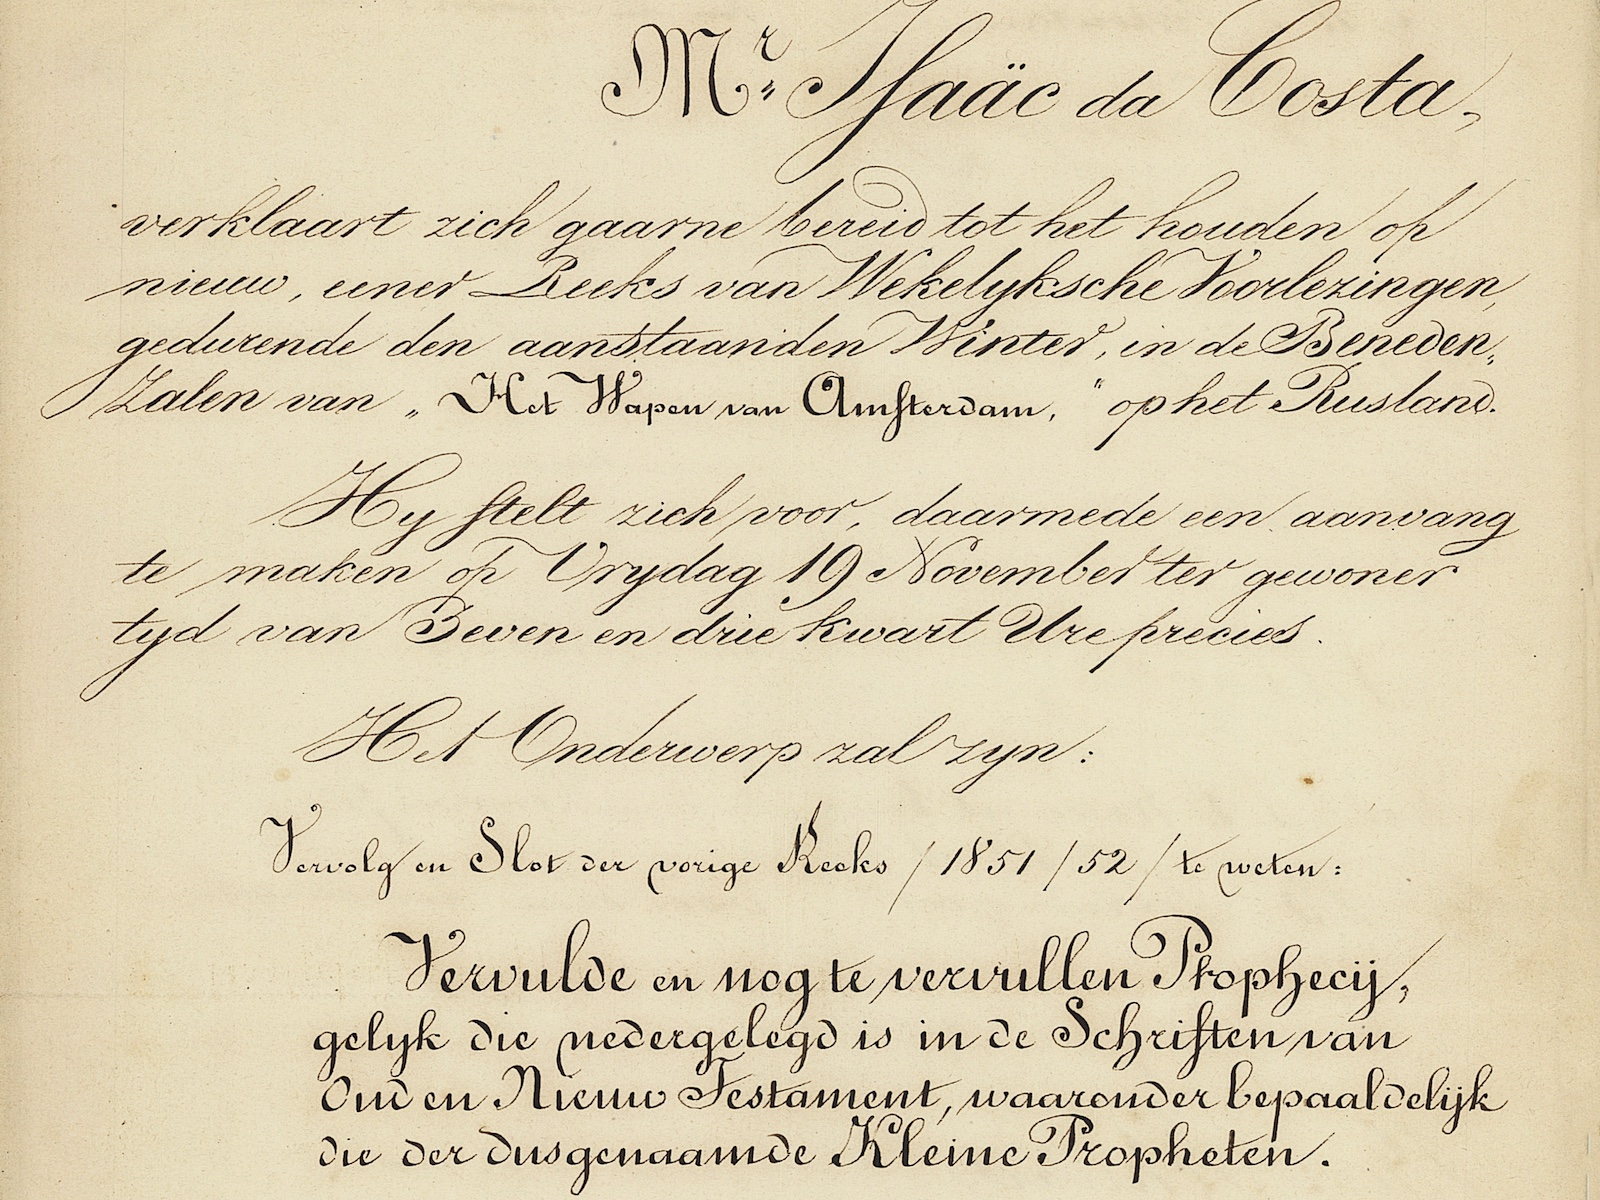 Mr. Isaäc da Costa,
verklaart zich gaarne bereid tot het houden op
nieuw, eener Reeks van Wekelyksche Voorlezingen,
gedurende den aanstaanden Winter, in de Beneden-
Zalen van „Het Wapen van Amsterdam," op het Rusland.
Hy stelt zich voor, daarmede een aanvang
te maken op Vrydag 19 November ter gewoner
tyd van Zeven en drie kwart Ure precies.
Het Onderwerp zal zyn:
Vervolg en Slot der vorige Reeks /1851/52/ te weten:
Vervulde en nog te vervullen Prophecij,
gelyk die nedergelegd is in de Schriften van
Oud en Nieuw Testament, waaronder bepaaldelijk
die der dusgenaamde Kleine Propheten.